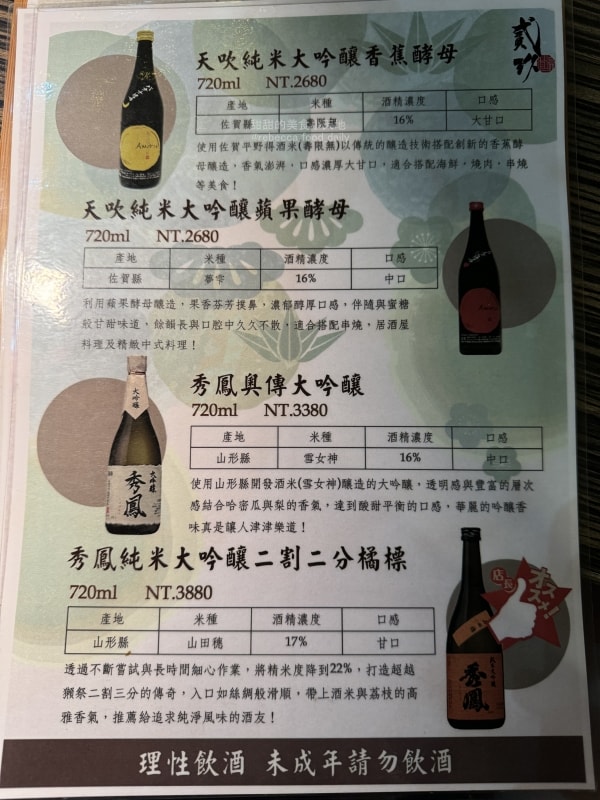 貳玖
天吹純米大吟釀香蕉酵母
720ml NT.2680
產地 米種 酒精濃度 口感
佐賀縣 壽限無 16% 大甘口
使用佐賀平野得酒米(壽限無)以傳統的釀造技術搭配創新的香蕉酵
母釀造，香氣澎湃，口感濃厚大甘口，適合搭配海鮮，燒肉，串燒
等美食！
天吹純米大吟釀蘋果酵母
720ml NT.2680
產地 米種 酒精濃度 口感
佐賀縣 夢雫 16% 中口
利用蘋果酵母釀造，果香芬芳撲鼻，濃郁醇厚口感，伴隨與蜜糖
般甘甜味道，餘韻長與口腔中久久不散，適合搭配串燒，居酒屋
料理及精緻中式料理！
大吟釀
秀鳳
秀鳳與傳大吟釀
720ml NT.3380
產地 米種 酒精濃度 口感
山形縣 雪女神 16% 中口
使用山形縣開發酒米(雪女神)釀造的大吟釀，透明感與豐富的層次
感結合哈密瓜與梨的香氣，達到酸甜平衡的口感，華麗的吟釀香
味真是讓人津津樂道！
秀鳳純米大吟釀二割二分橘標
720ml NT.3880
產地 米種 酒精濃度 口感
山形縣 山田穗 17% 甘口
透過不斷嘗試與長時間細心作業，將精米度降到22%，打造超越
獺祭二割三分的傳奇，入口如絲綢般滑順，帶上酒米與荔枝的高
雅香氣，推薦給追求純淨風味的酒友！
店長
オススメ!
秀鳳
理性飲酒 未成年請勿飲酒